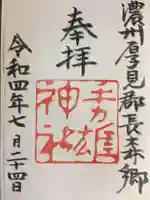 濃州厚見郡長森郷
奉拝
手力雄
神社
令和四年七月二十四日